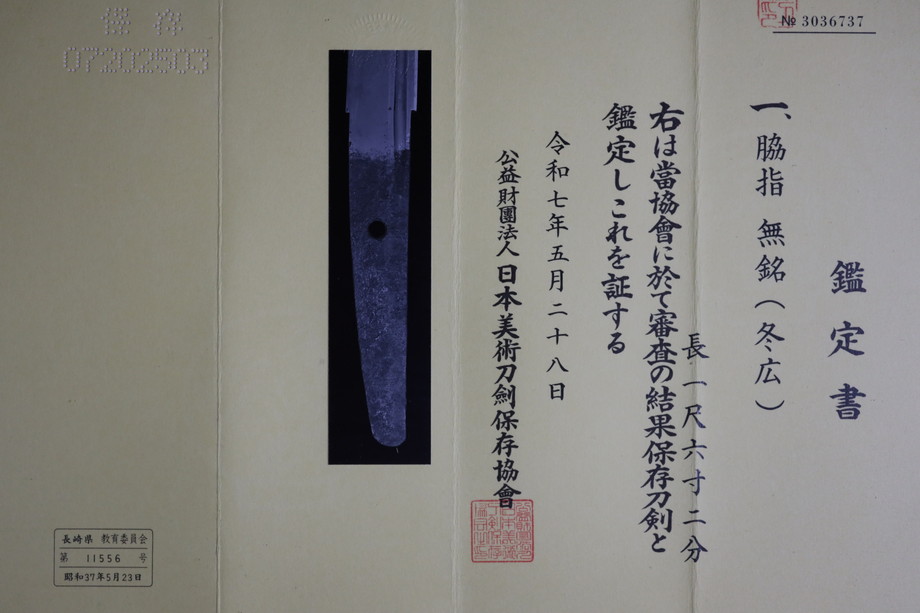 № 3036737
鑑定書
一、脇指 無銘（冬広）
長一尺六寸二分
右は當協會に於て審査の結果保存刀剣と
鑑定しこれを証する
令和七年五月二十八日
公益財團法人 日本美術刀劍保存協會
保存
07202503
長崎県 教育委員会
第 11556 号
昭和37年5月23日